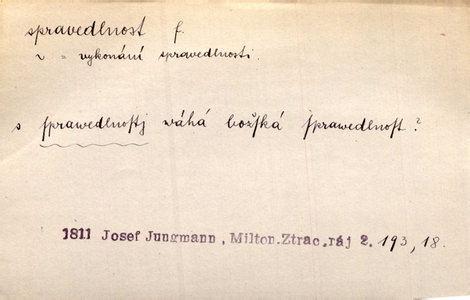 spravedlnost f.
v = vykonání spravedlnosti.
s ſprawedlnoſtj wáhá božſká ſprawedlnoſt?
1811 Josef Jungmann, Milton.Ztrac.ráj 2. 193, 18.